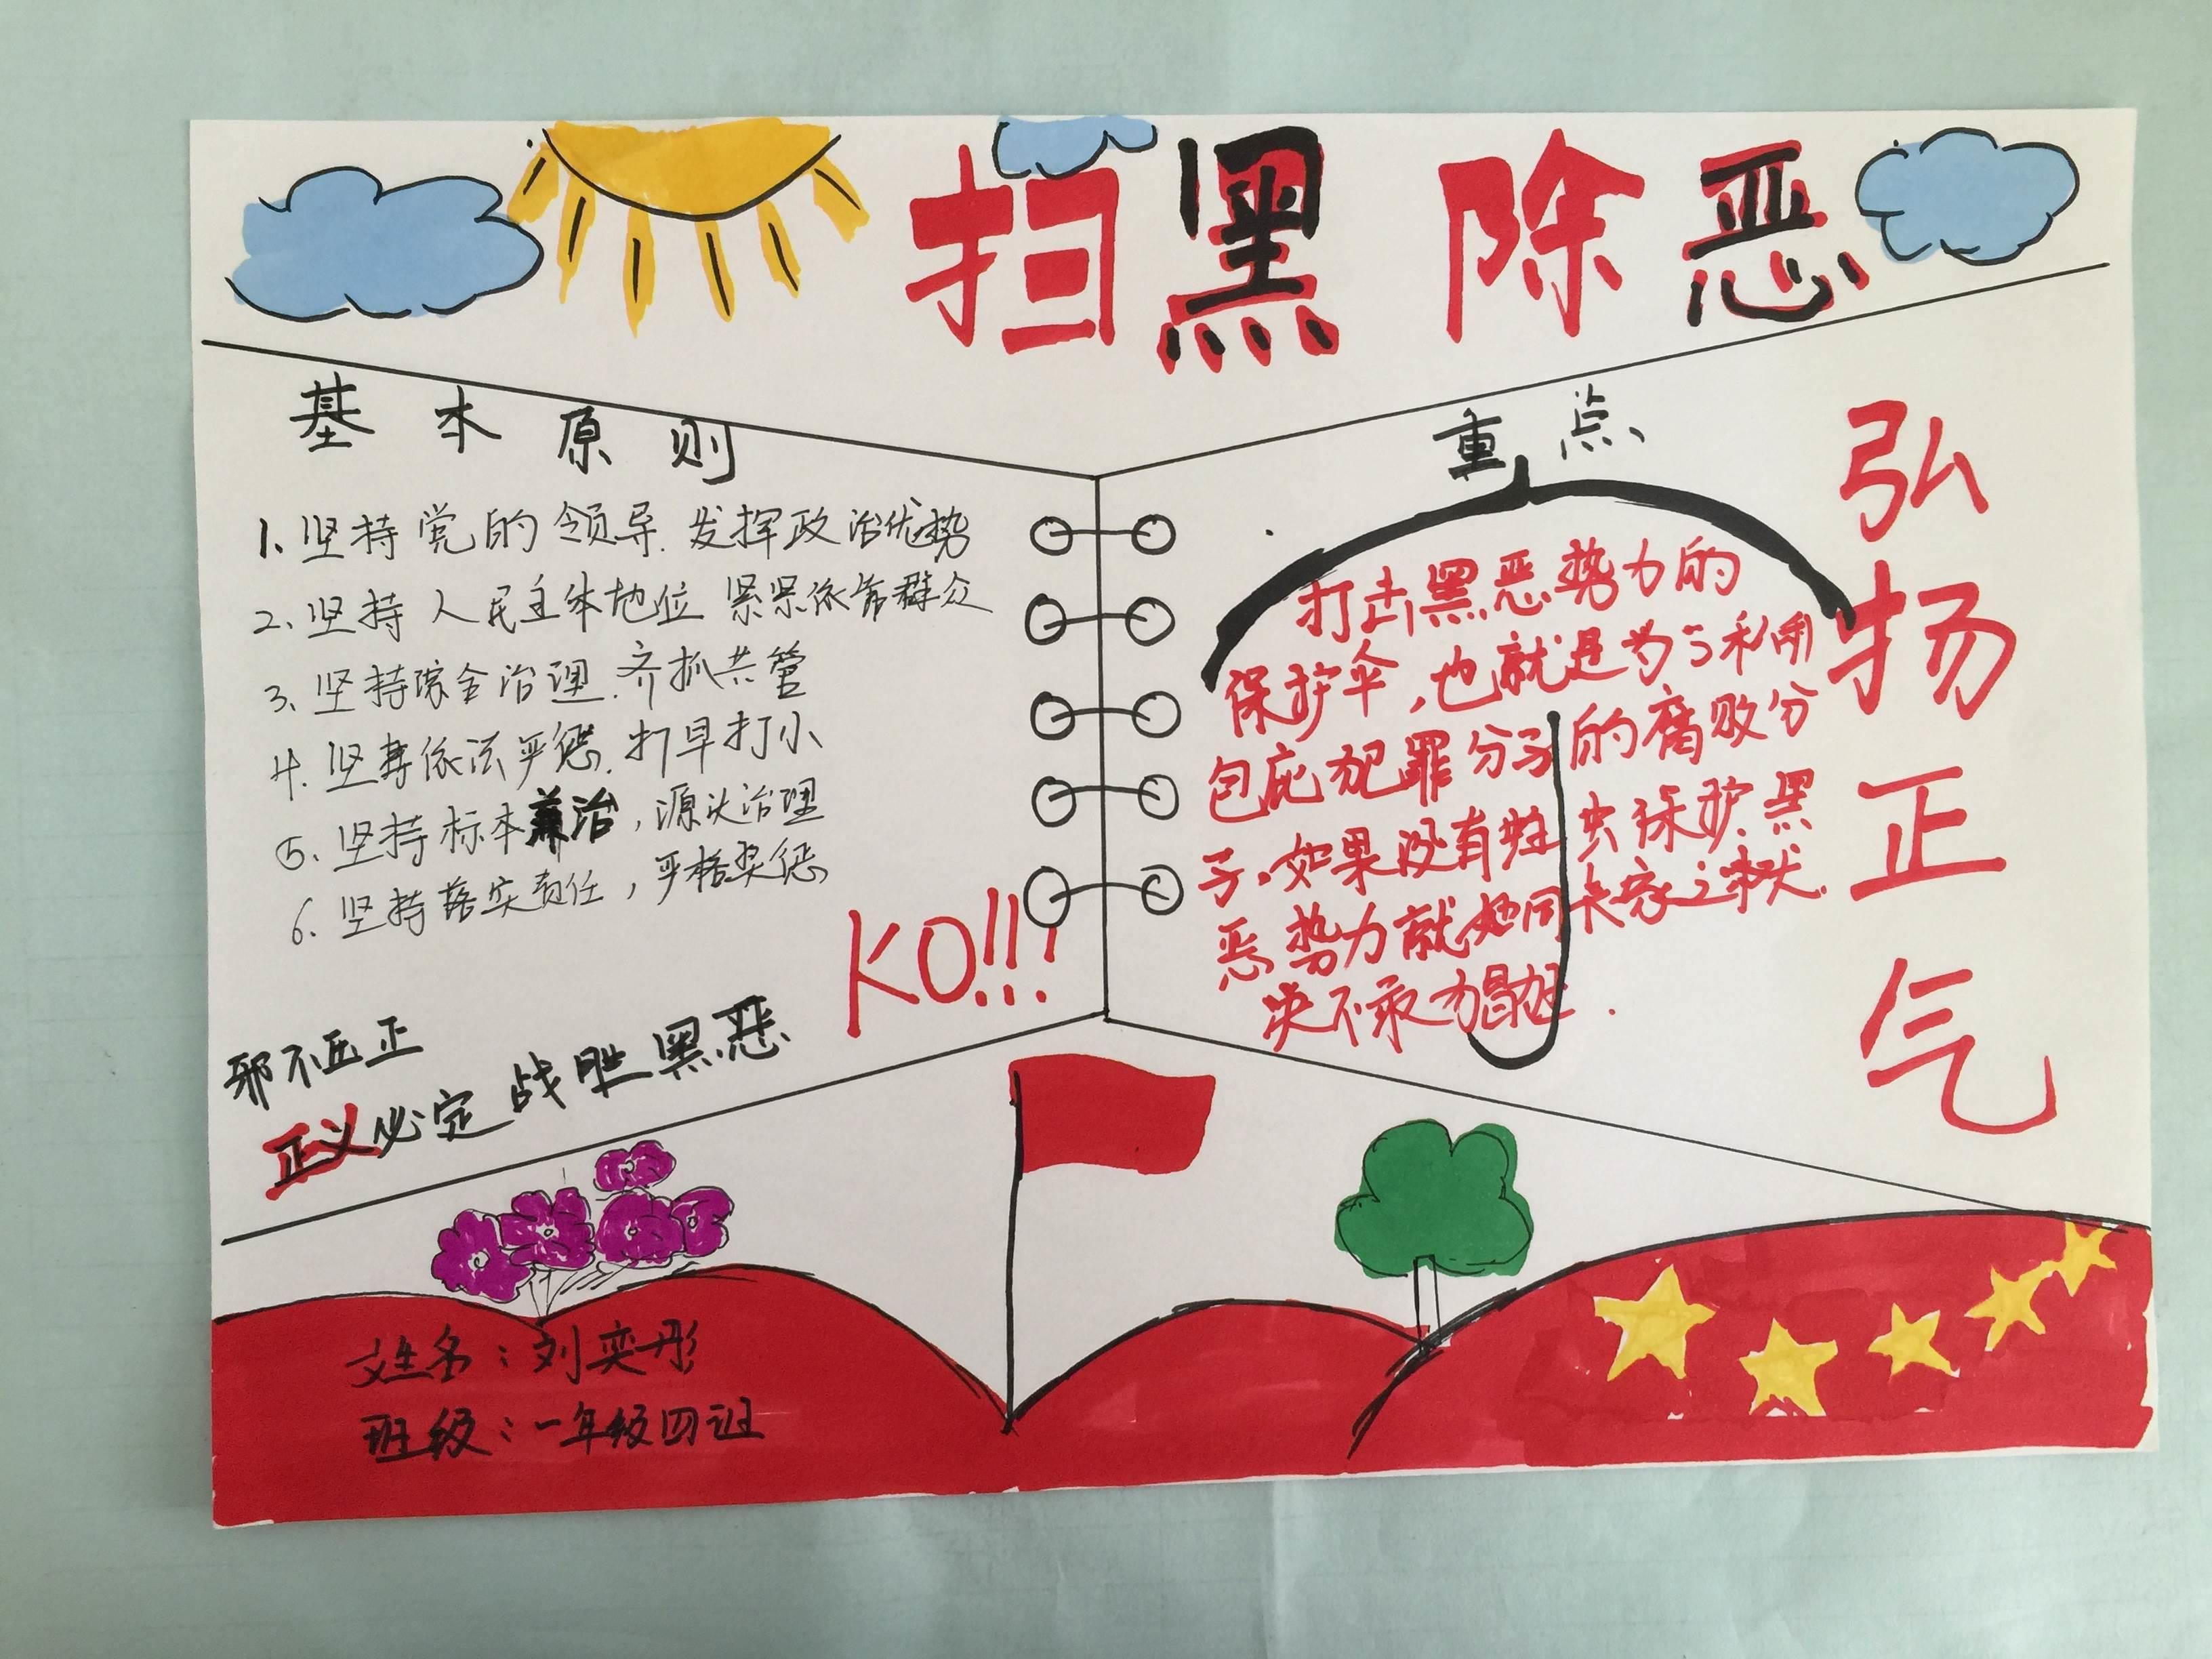 扫黑除恶
基本原则
1、坚持党的领导.发挥政治优势
2、坚持人民主体地位 紧紧依靠群众
3、坚持综合治理.齐抓共管
4.坚持依法严惩.打早打小
5、坚持标本兼治,源头治理
6.坚持落实责任,严格奖惩
KO!!!
邪不压正
正义必定战胜黑恶
重点
打击黑恶势力的
保护伞,也就是为了私利
包庇犯罪分子的腐败分
子.如果没有蛀虫保护.黑
恶势力就如同丧家之犬.
决不敢如此猖狂.
弘扬正气
姓名:刘奕彤
班级:一年级四班